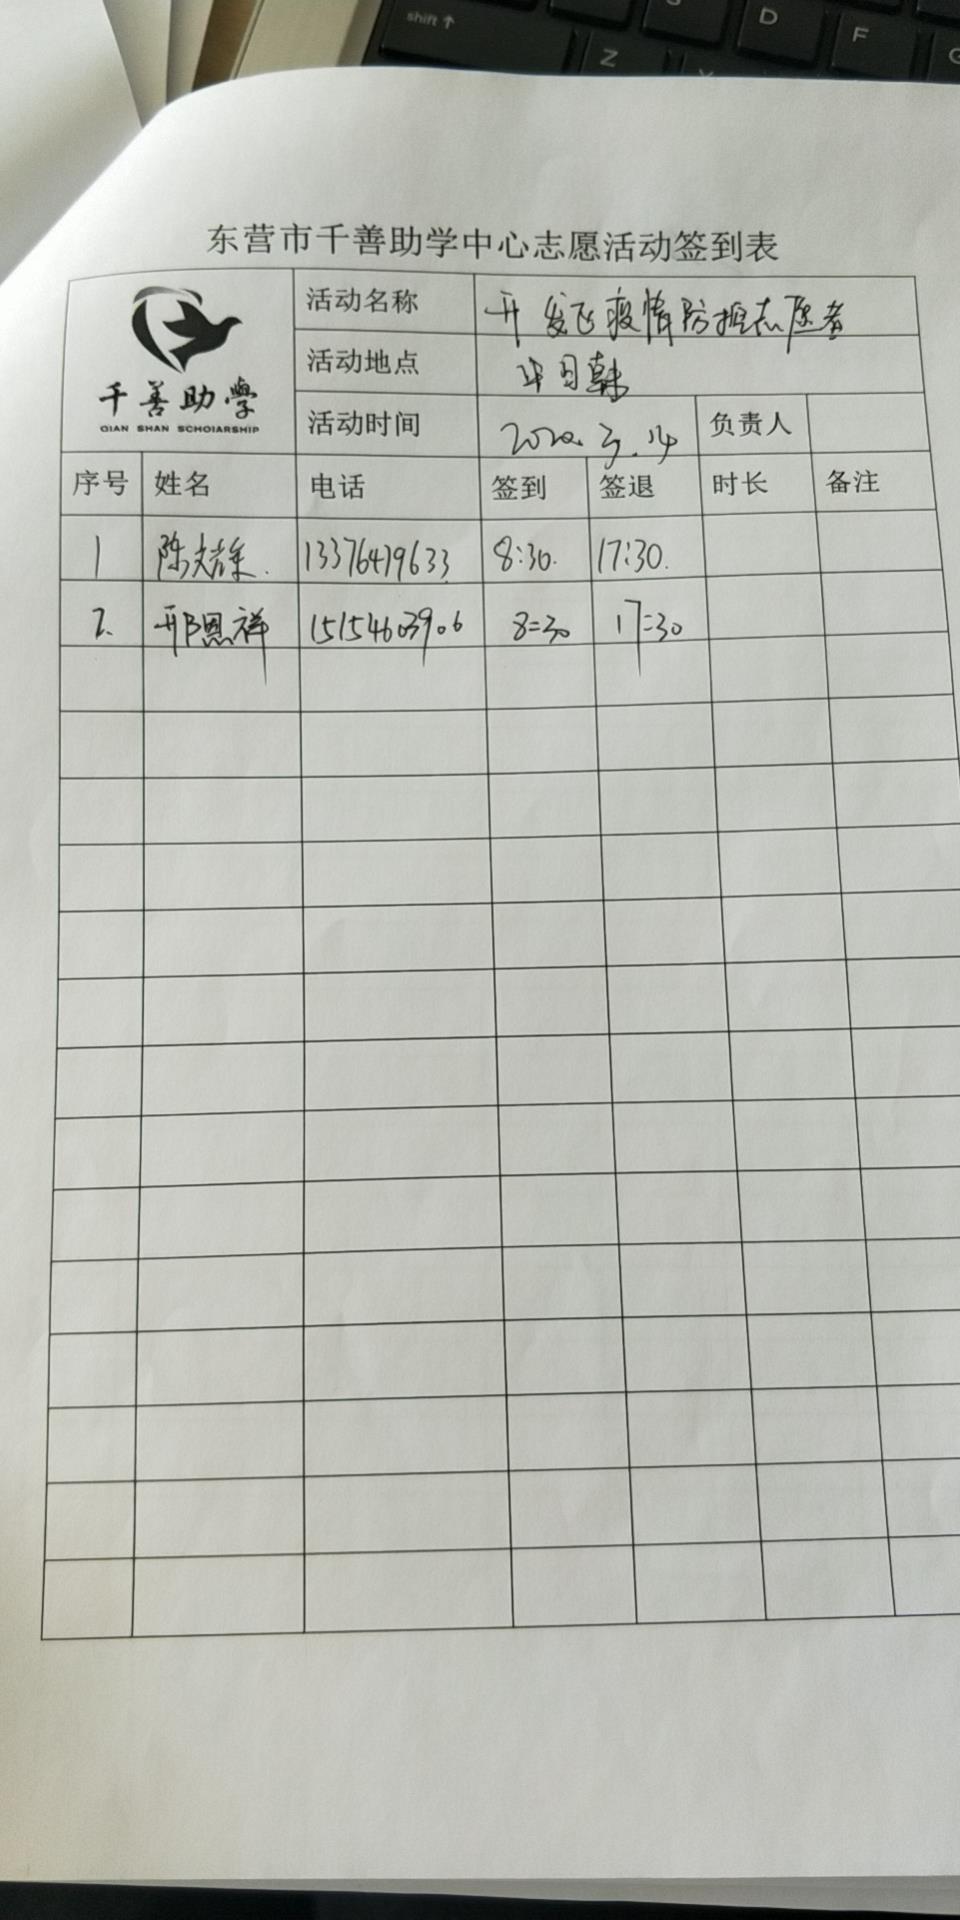 shift ↑
D
F
Z
东营市千善助学中心志愿活动签到表
千善助學
QIAN SHAN SCHOIARSHIP
活动名称 开发区疫情防控志愿者
活动地点
活动时间 2022.3.14 负责人
序号 姓名 电话 签到 签退 时长 备注
1 陈 13376479633 8:30. 17:30.
2. 邢恩祥 15154603906 8:30 17:30